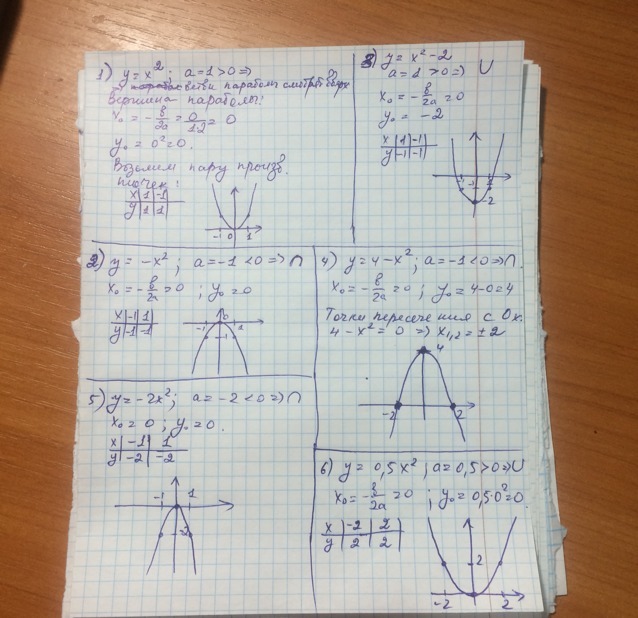 1) y = x²; a=1>0 =>
ветви параболы смотрят вверх
Вершина параболы:
x₀ = -b/2a = 0/1·2 = 0
y₀ = 0² = 0.
Возьмём пару произв.
точек:
x | 1 | -1
y | 1 | 1
-1 0 1
3) y = x² - 2
a = 1 > 0 => ∪
x₀ = -b/2a = 0
y₀ = -2
x | 1 | -1
y | -1 | -1
-1 1
-2
2) y = -x²; a = -1 < 0 => ∩
x₀ = -b/2a = 0; y₀ = 0
x | -1 | 1
y | -1 | -1
0
-1 1
-1
4) y = 4 - x²; a = -1 < 0 => ∩.
x₀ = -b/2a = 0; y₀ = 4 - 0 = 4
Точки пересечения с Ox:
4 - x² = 0 => x₁,₂ = ±2
4
-2 2
5) y = -2x²; a = -2 < 0 => ∩
x₀ = 0; y₀ = 0.
x | -1 | 1
y | -2 | -2
-1 1
-2
6) y = 0,5x²; a = 0,5 > 0 => ∪
x₀ = -b/2a = 0; y₀ = 0,5·0² = 0.
x | -2 | 2
y | 2 | 2
2
-2 2